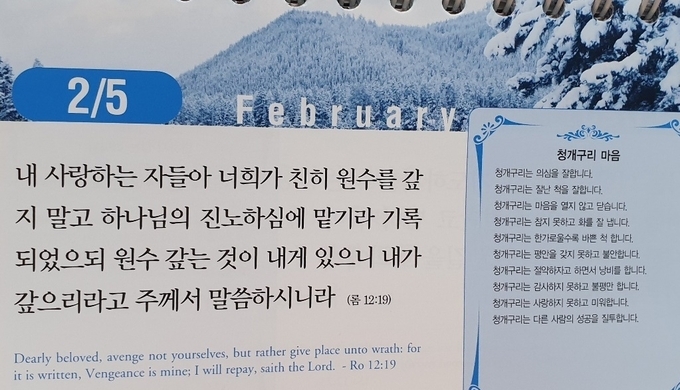 2/5
February
내 사랑하는 자들아 너희가 친히 원수를 갚
지 말고 하나님의 진노하심에 맡기라 기록
되었으되 원수 갚는 것이 내게 있으니 내가
갚으리라고 주께서 말씀하시니라 (롬 12:19)
Dearly beloved, avenge not yourselves, but rather give place unto wrath: for
it is written, Vengeance is mine; I will repay, saith the Lord. - Ro 12:19
청개구리 마음
청개구리는 의심을 잘합니다.
청개구리는 잘난 척을 잘합니다.
청개구리는 마음을 열지 않고 닫습니다.
청개구리는 참지 못하고 화를 잘 냅니다.
청개구리는 한가로울수록 바쁜 척 합니다.
청개구리는 평안을 갖지 못하고 불안합니다.
청개구리는 절약하자고 하면서 낭비를 합니다.
청개구리는 감사하지 못하고 불평만 합니다.
청개구리는 사랑하지 못하고 미워합니다.
청개구리는 다른 사람의 성공을 질투합니다.